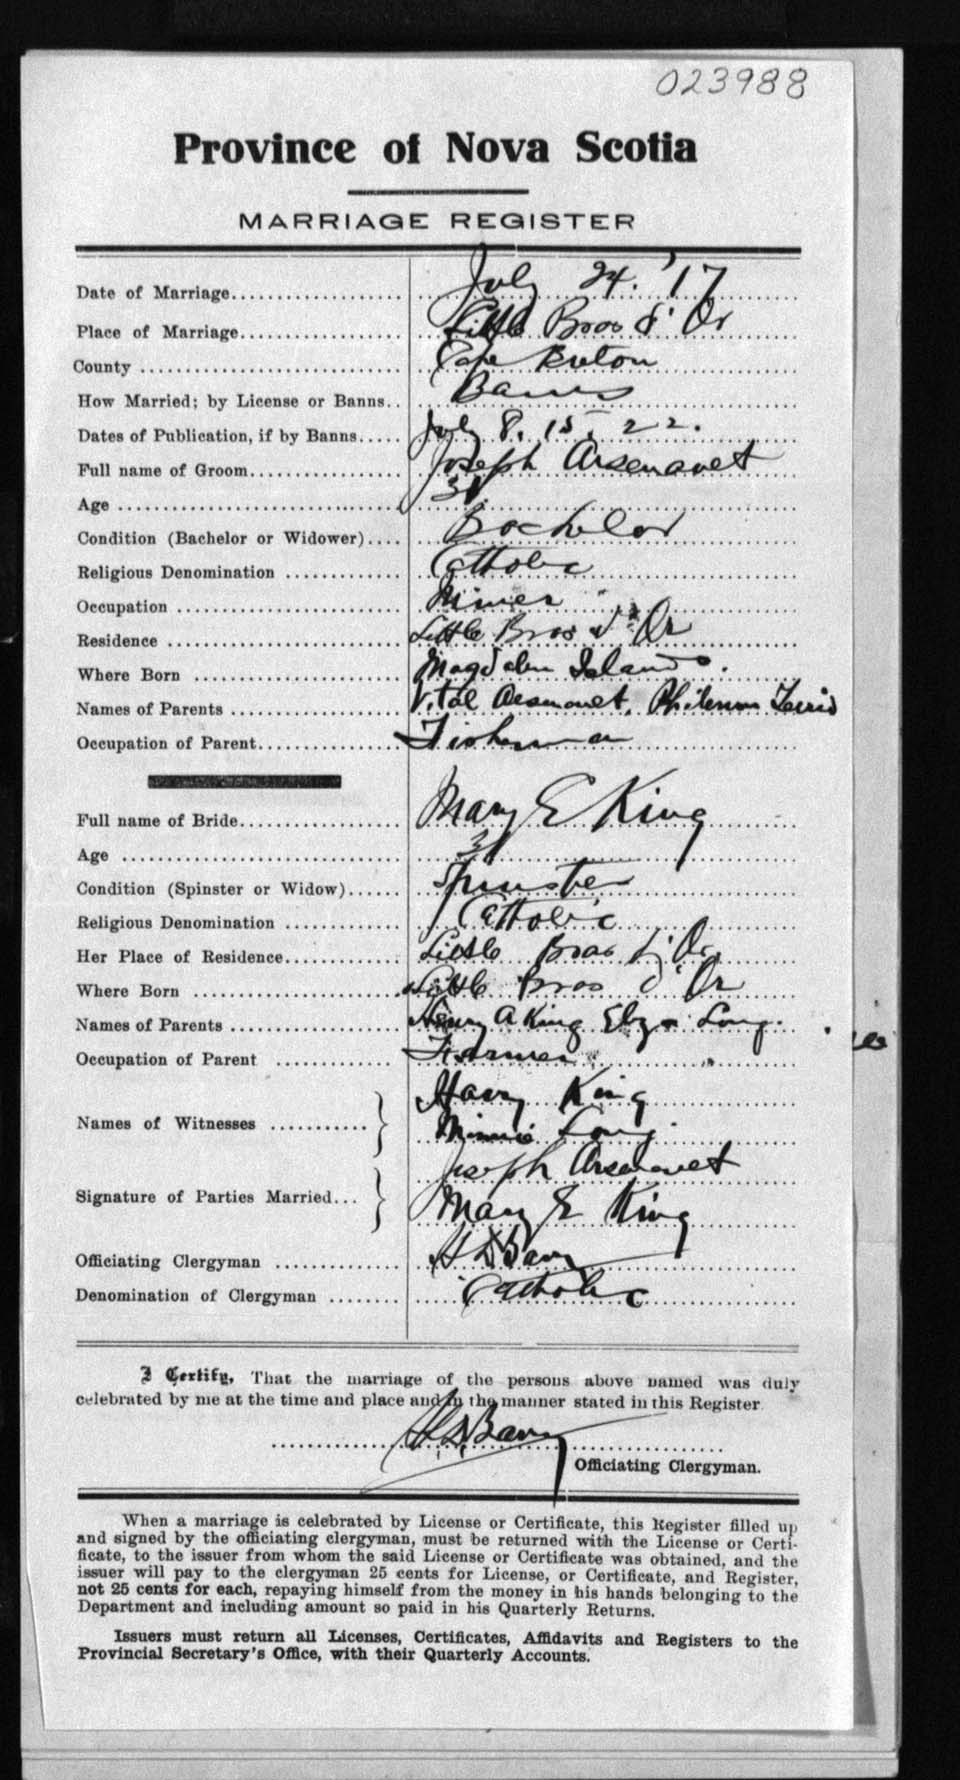 023988
Province of Nova Scotia
MARRIAGE REGISTER
Date of Marriage July 24. '17
Place of Marriage Little Bras d' Or
County Cape Breton
How Married; by License or Banns Banns
Dates of Publication, if by Banns July 8, 15, 22.
Full name of Groom Joseph Arsenault
Age 31
Condition (Bachelor or Widower) Bachelor
Religious Denomination Catholic
Occupation Miner
Residence Little Bras d' Or
Where Born Magdalen Islands.
Names of Parents Vital Arsenault,
Occupation of Parent Fisherman
Full name of Bride Mary E King
Age 31
Condition (Spinster or Widow) Spinster
Religious Denomination Catholic
Her Place of Residence Little Bras d' Or
Where Born Little Bras d' Or
Names of Parents Henry A King Eliza Long.
Occupation of Parent Farmer
Names of Witnesses Harry King
Minnie Long
Signature of Parties Married Joseph Arsenault
Mary E King
Officiating Clergyman
Denomination of Clergyman Catholic
I Certify, That the marriage of the persons above named was duly
celebrated by me at the time and place and in the manner stated in this Register
Officiating Clergyman.
When a marriage is celebrated by License or Certificate, this Register filled up
and signed by the officiating clergyman, must be returned with the License or Certi-
ficate, to the issuer from whom the said License or Certificate was obtained, and the
issuer will pay to the clergyman 25 cents for License, or Certificate, and Register,
not 25 cents for each, repaying himself from the money in his hands belonging to the
Department and including amount so paid in his Quarterly Returns.
Issuers must return all Licenses, Certificates, Affidavits and Registers to the
Provincial Secretary's Office, with their Quarterly Accounts.